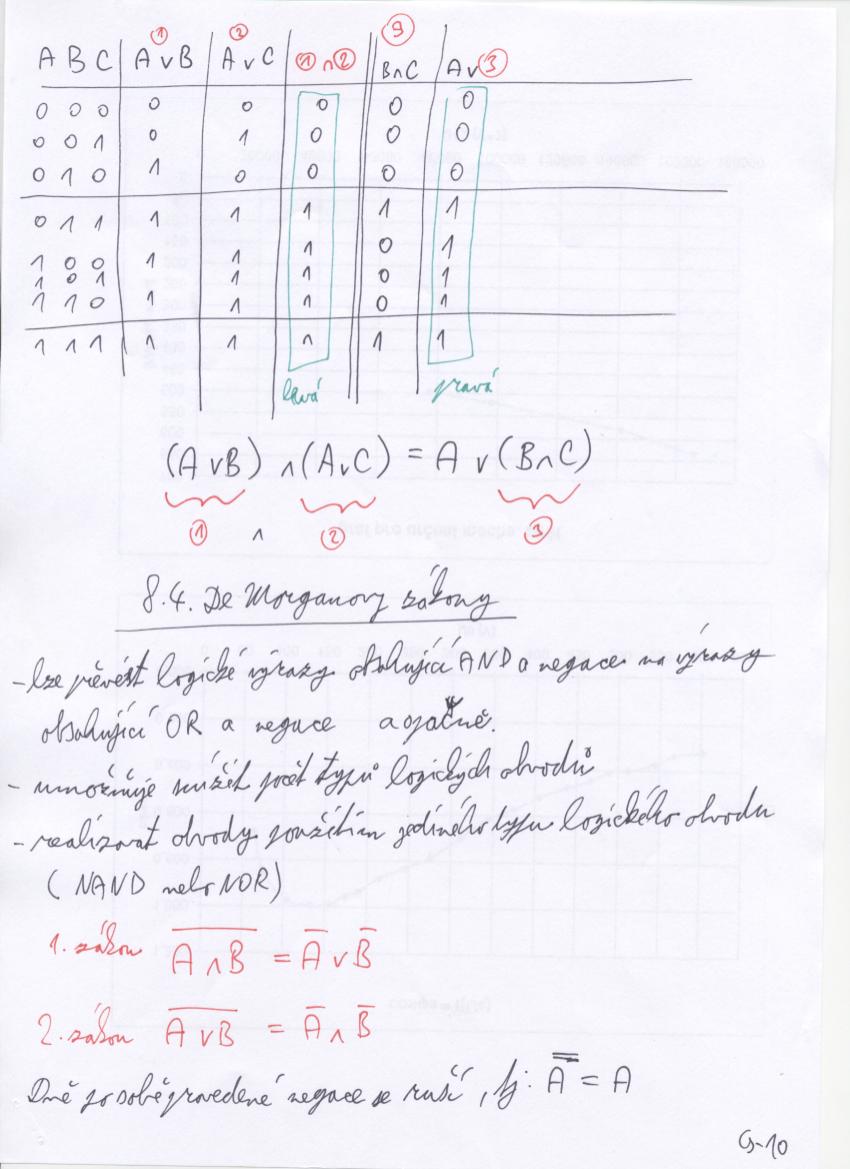 ① ② ③
A B C A ∨ B A ∨ C ① ∧ ② B∧C A ∨ ③
0 0 0 0 0 0 0 0
0 0 1 0 1 0 0 0
0 1 0 1 0 0 0 0
0 1 1 1 1 1 1 1
1 0 0 1 1 1 0 1
1 0 1 1 1 0 1
1 1 0 1 1 1 0 1
1 1 1 1 1 1 1 1
levá pravá
(A ∨ B) ∧ (A ∨ C) = A ∨ (B ∧ C)
① ∧ ② ③
8.4. De Morganovy zákony
- lze převést logické výrazy obsahující AND a negace na výrazy
obsahující OR a negace a opačně.
- umožňuje snížit počet typů logických obvodů
- realizovat obvody použitím jediného typu logického obvodu
(NAND nebo NOR)
1. zákon A̅ ̅∧̅ ̅B̅ = A̅ ∨ B̅
2. zákon A̅ ̅∨̅ ̅B̅ = A̅ ∧ B̅
Dvě po sobě provedené negace se ruší, tj: A̿ = A